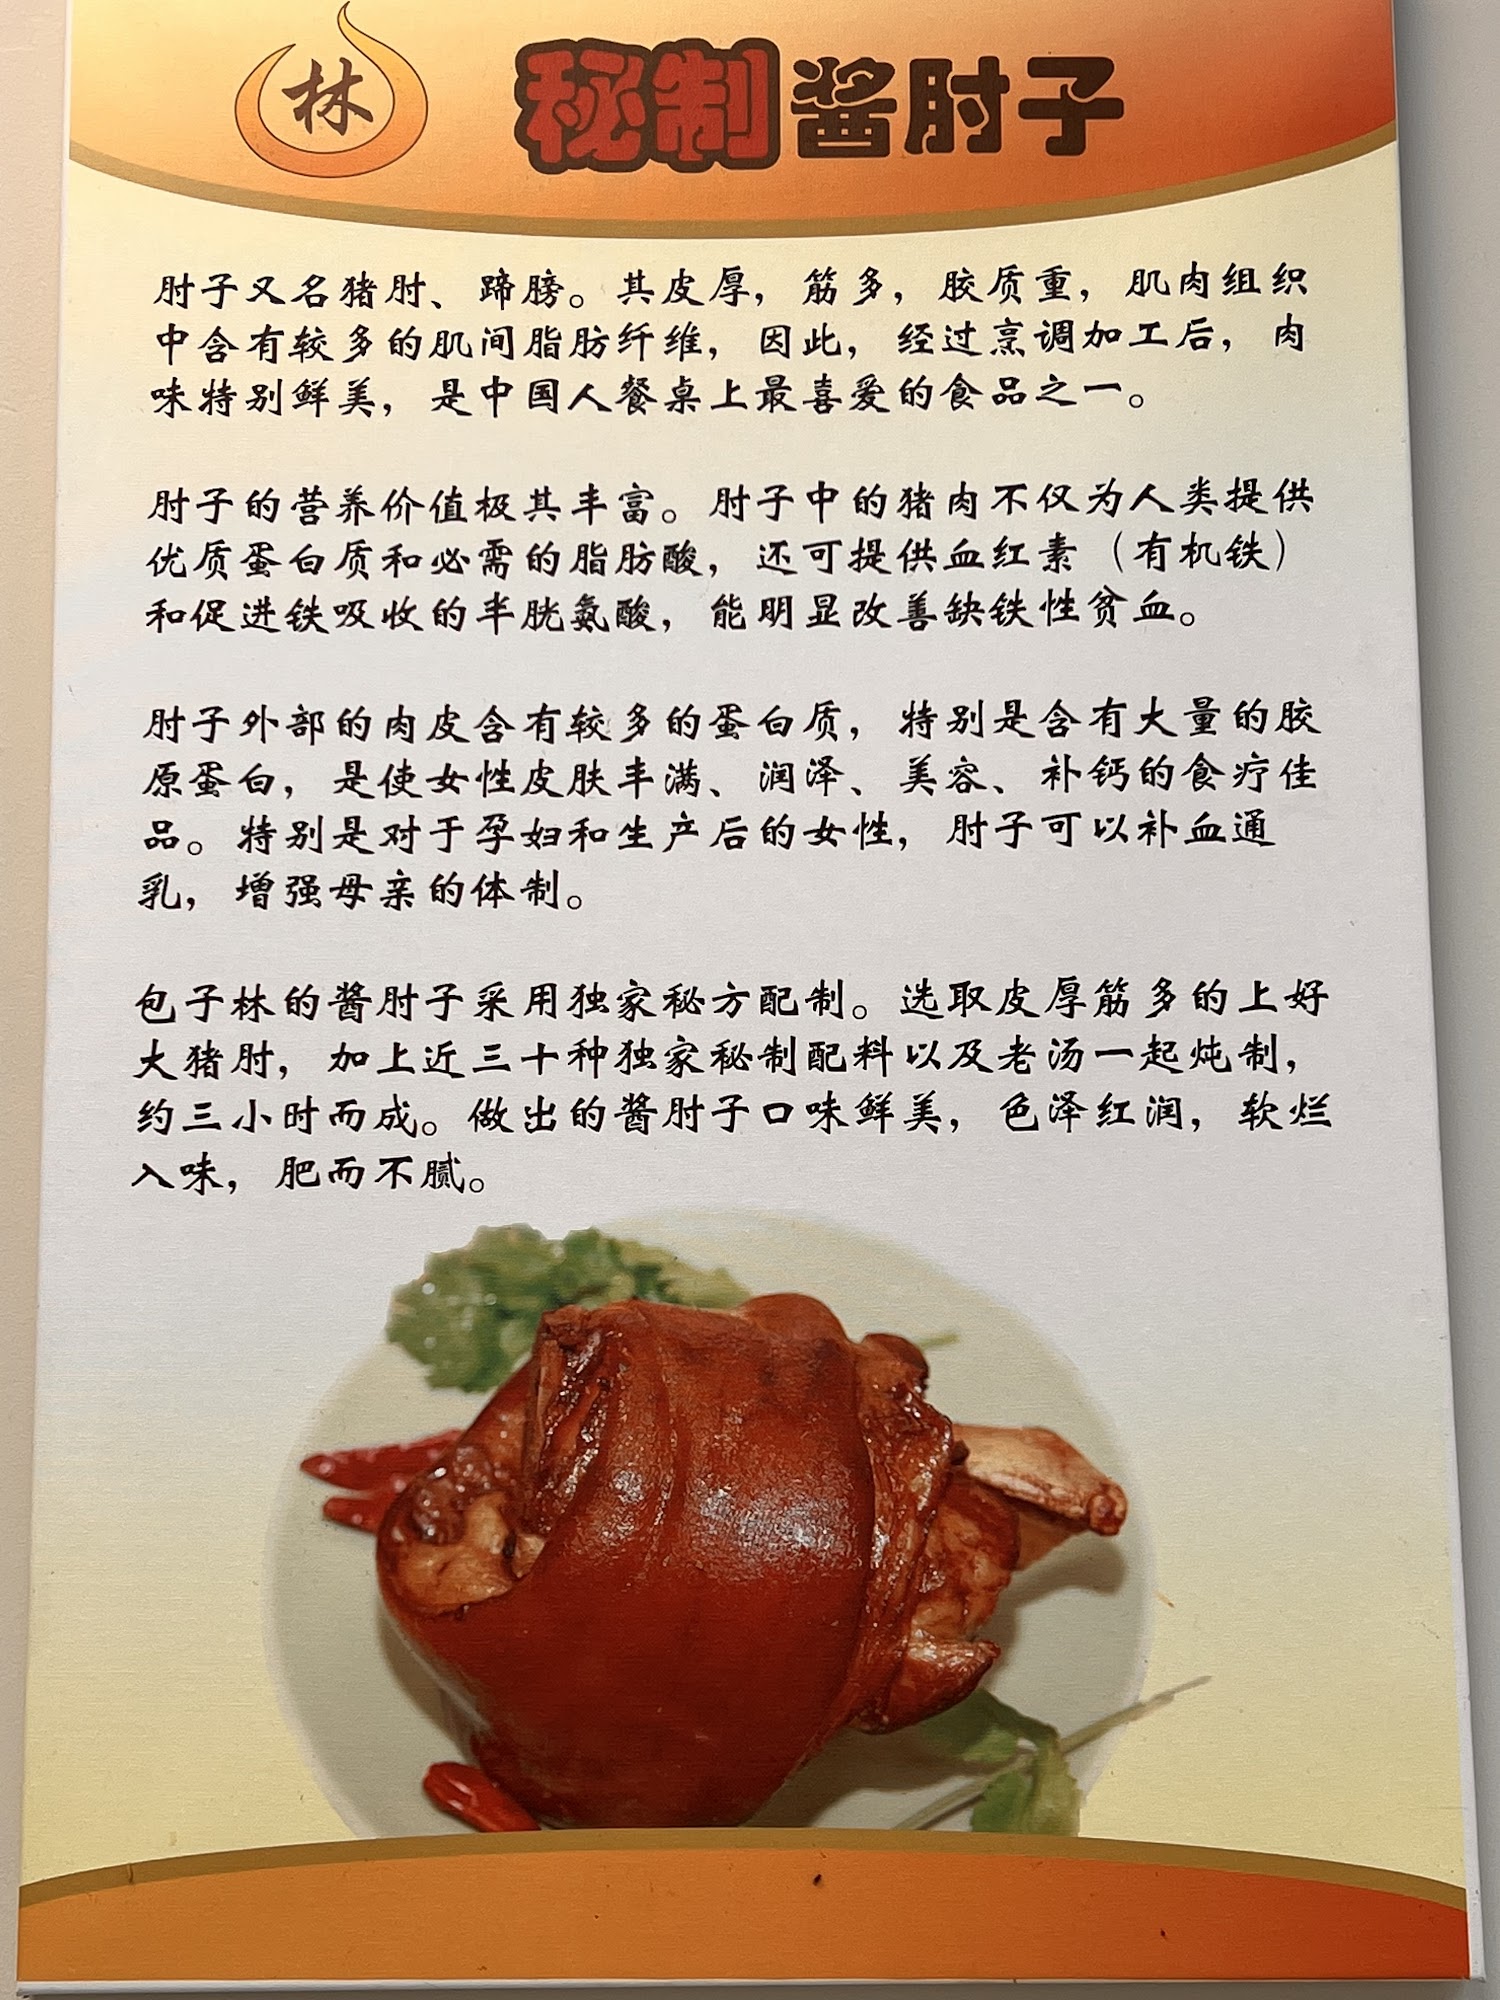 林
秘制酱肘子
肘子又名猪肘、蹄膀。其皮厚，筋多，胶质重，肌肉组织
中含有较多的肌间脂肪纤维，因此，经过烹调加工后，肉
味特别鲜美，是中国人餐桌上最喜爱的食品之一。
肘子的营养价值极其丰富。肘子中的猪肉不仅为人类提供
优质蛋白质和必需的脂肪酸，还可提供血红素（有机铁）
和促进铁吸收的半胱氨酸，能明显改善缺铁性贫血。
肘子外部的肉皮含有较多的蛋白质，特别是含有大量的胶
原蛋白，是使女性皮肤丰满、润泽、美容、补钙的食疗佳
品。特别是对于孕妇和生产后的女性，肘子可以补血通
乳，增强母亲的体制。
包子林的酱肘子采用独家秘方配制。选取皮厚筋多的上好
大猪肘，加上近三十种独家秘制配料以及老汤一起炖制，
约三小时而成。做出的酱肘子口味鲜美，色泽红润，软烂
入味，肥而不腻。